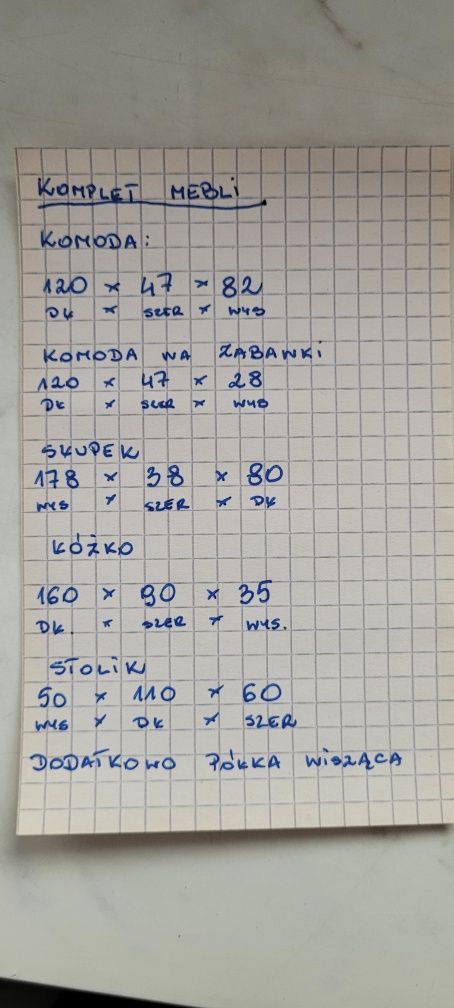 KOMPLET MEBLI
KOMODA:
120 x 47 x 82
DŁ x SZER x WYS
KOMODA NA ZABAWKI
120 x 47 x 28
DŁ x SZER x WYS
SŁUPEK
178 x 38 x 80
WYS x SZER x DŁ
ŁÓŻKO
160 x 90 x 35
DŁ. x SZER x WYS.
STOLIK
50 x 110 x 60
WYS x DŁ x SZER
DODATKOWO PÓŁKA WISZĄCA